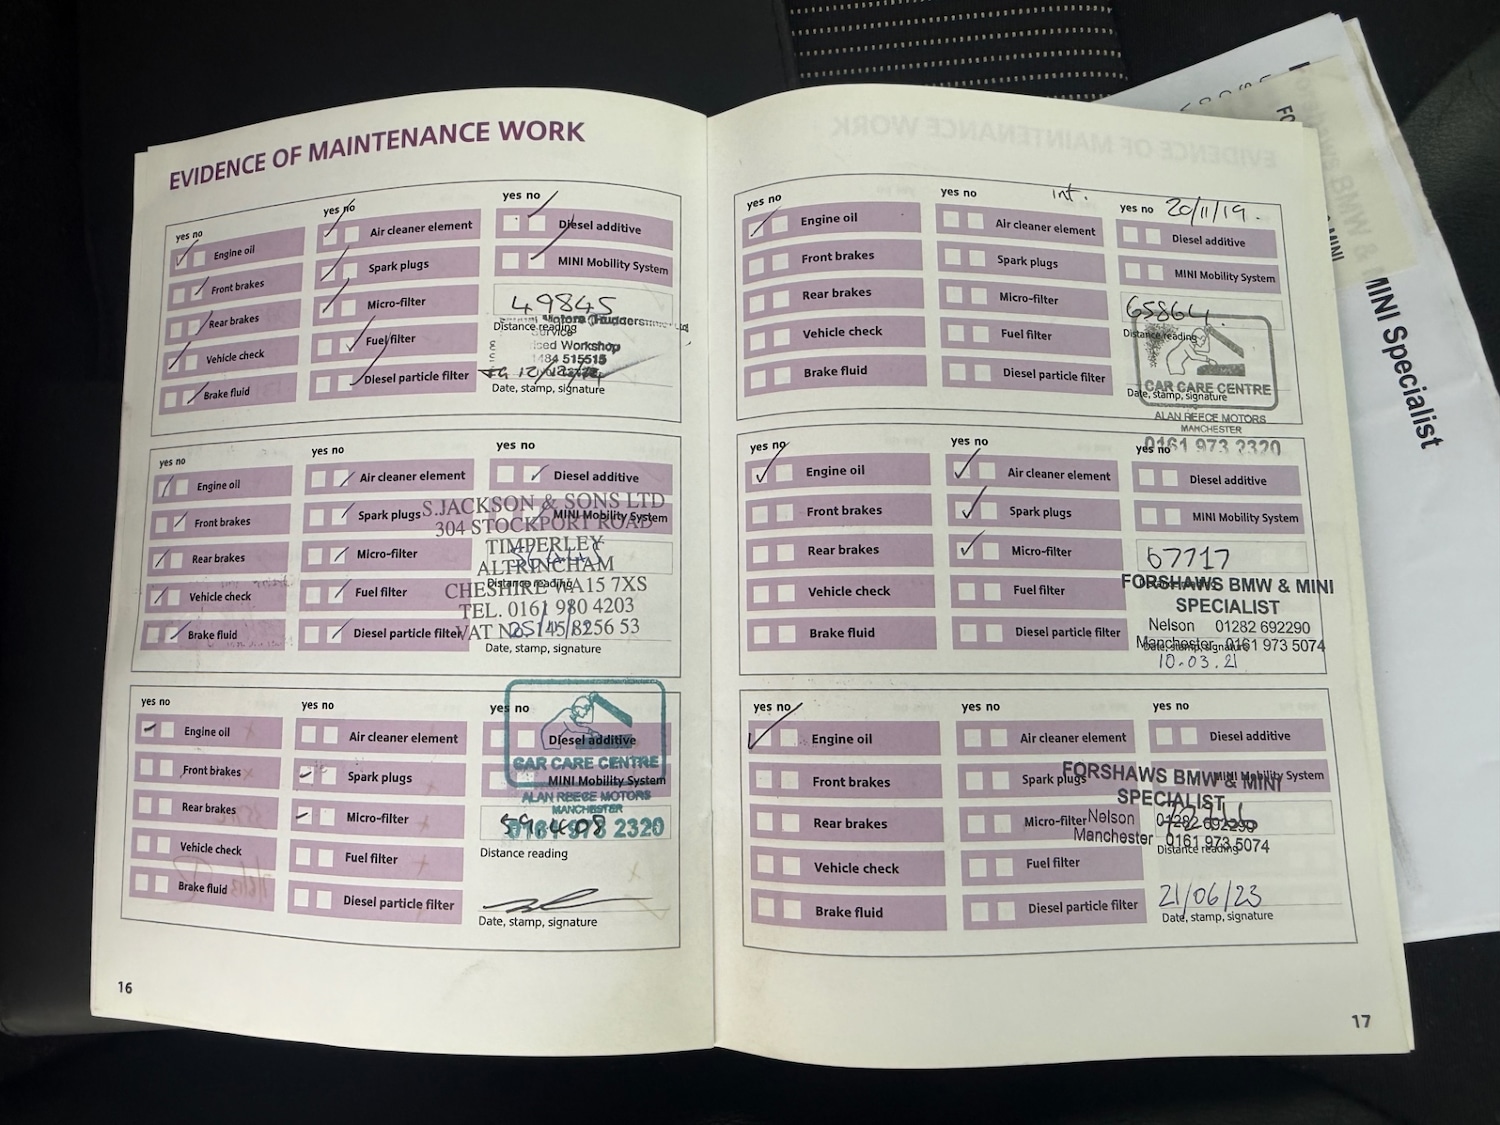 EVIDENCE OF MAINTENANCE WORK
yes no
Engine oil
Front brakes
Rear brakes
Vehicle check
Brake fluid
yes no
Air cleaner element
Spark plugs
Micro-filter
Fuel filter
Diesel particle filter
yes no
Diesel additive
MINI Mobility System
49845
Distance reading
Service
Workshop
515515
Date, stamp, signature
yes no
Engine oil
Front brakes
Rear brakes
Vehicle check
Brake fluid
yes no
Air cleaner element
Spark plugs
Micro-filter
Fuel filter
Diesel particle filter
yes no
Diesel additive
MINI Mobility System
S.JACKSON & SONS LTD
304 STOCKPORT ROAD
TIMPERLEY
ALTRINCHAM
Distance reading
CHESHIRE WA15 7XS
TEL. 0161 980 4203
VAT No. 145 8256 53
Date, stamp, signature
yes no
Engine oil
Front brakes
Rear brakes
Vehicle check
Brake fluid
yes no
Air cleaner element
Spark plugs
Micro-filter
Fuel filter
Diesel particle filter
yes no
Diesel additive
CAR CARE CENTRE
MINI Mobility System
ALAN REECE MOTORS
MANCHESTER
0161 973 2320
59408
Distance reading
Date, stamp, signature
16
yes no
Engine oil
Front brakes
Rear brakes
Vehicle check
Brake fluid
yes no
int.
Air cleaner element
Spark plugs
Micro-filter
Fuel filter
Diesel particle filter
yes no
20/11/19.
Diesel additive
MINI Mobility System
65864
Distance reading
CAR CARE CENTRE
Date, stamp, signature
ALAN REECE MOTORS
MANCHESTER
0161 973 2320
yes no
Engine oil
Front brakes
Rear brakes
Vehicle check
Brake fluid
yes no
Air cleaner element
Spark plugs
Micro-filter
Fuel filter
Diesel particle filter
yes no
Diesel additive
MINI Mobility System
67717
FORSHAWS BMW & MINI
SPECIALIST
Nelson 01282 692290
Manchester 0161 973 5074
Date, stamp, signature
10.03.21
yes no
Engine oil
Front brakes
Rear brakes
Vehicle check
Brake fluid
yes no
Air cleaner element
Spark plugs
Micro-filter
Fuel filter
Diesel particle filter
yes no
Diesel additive
MINI Mobility System
FORSHAWS BMW & MINI
SPECIALIST
Nelson 01282 692290
Manchester 0161 973 5074
Distance reading
21/06/23
Date, stamp, signature
17
MINI Specialist